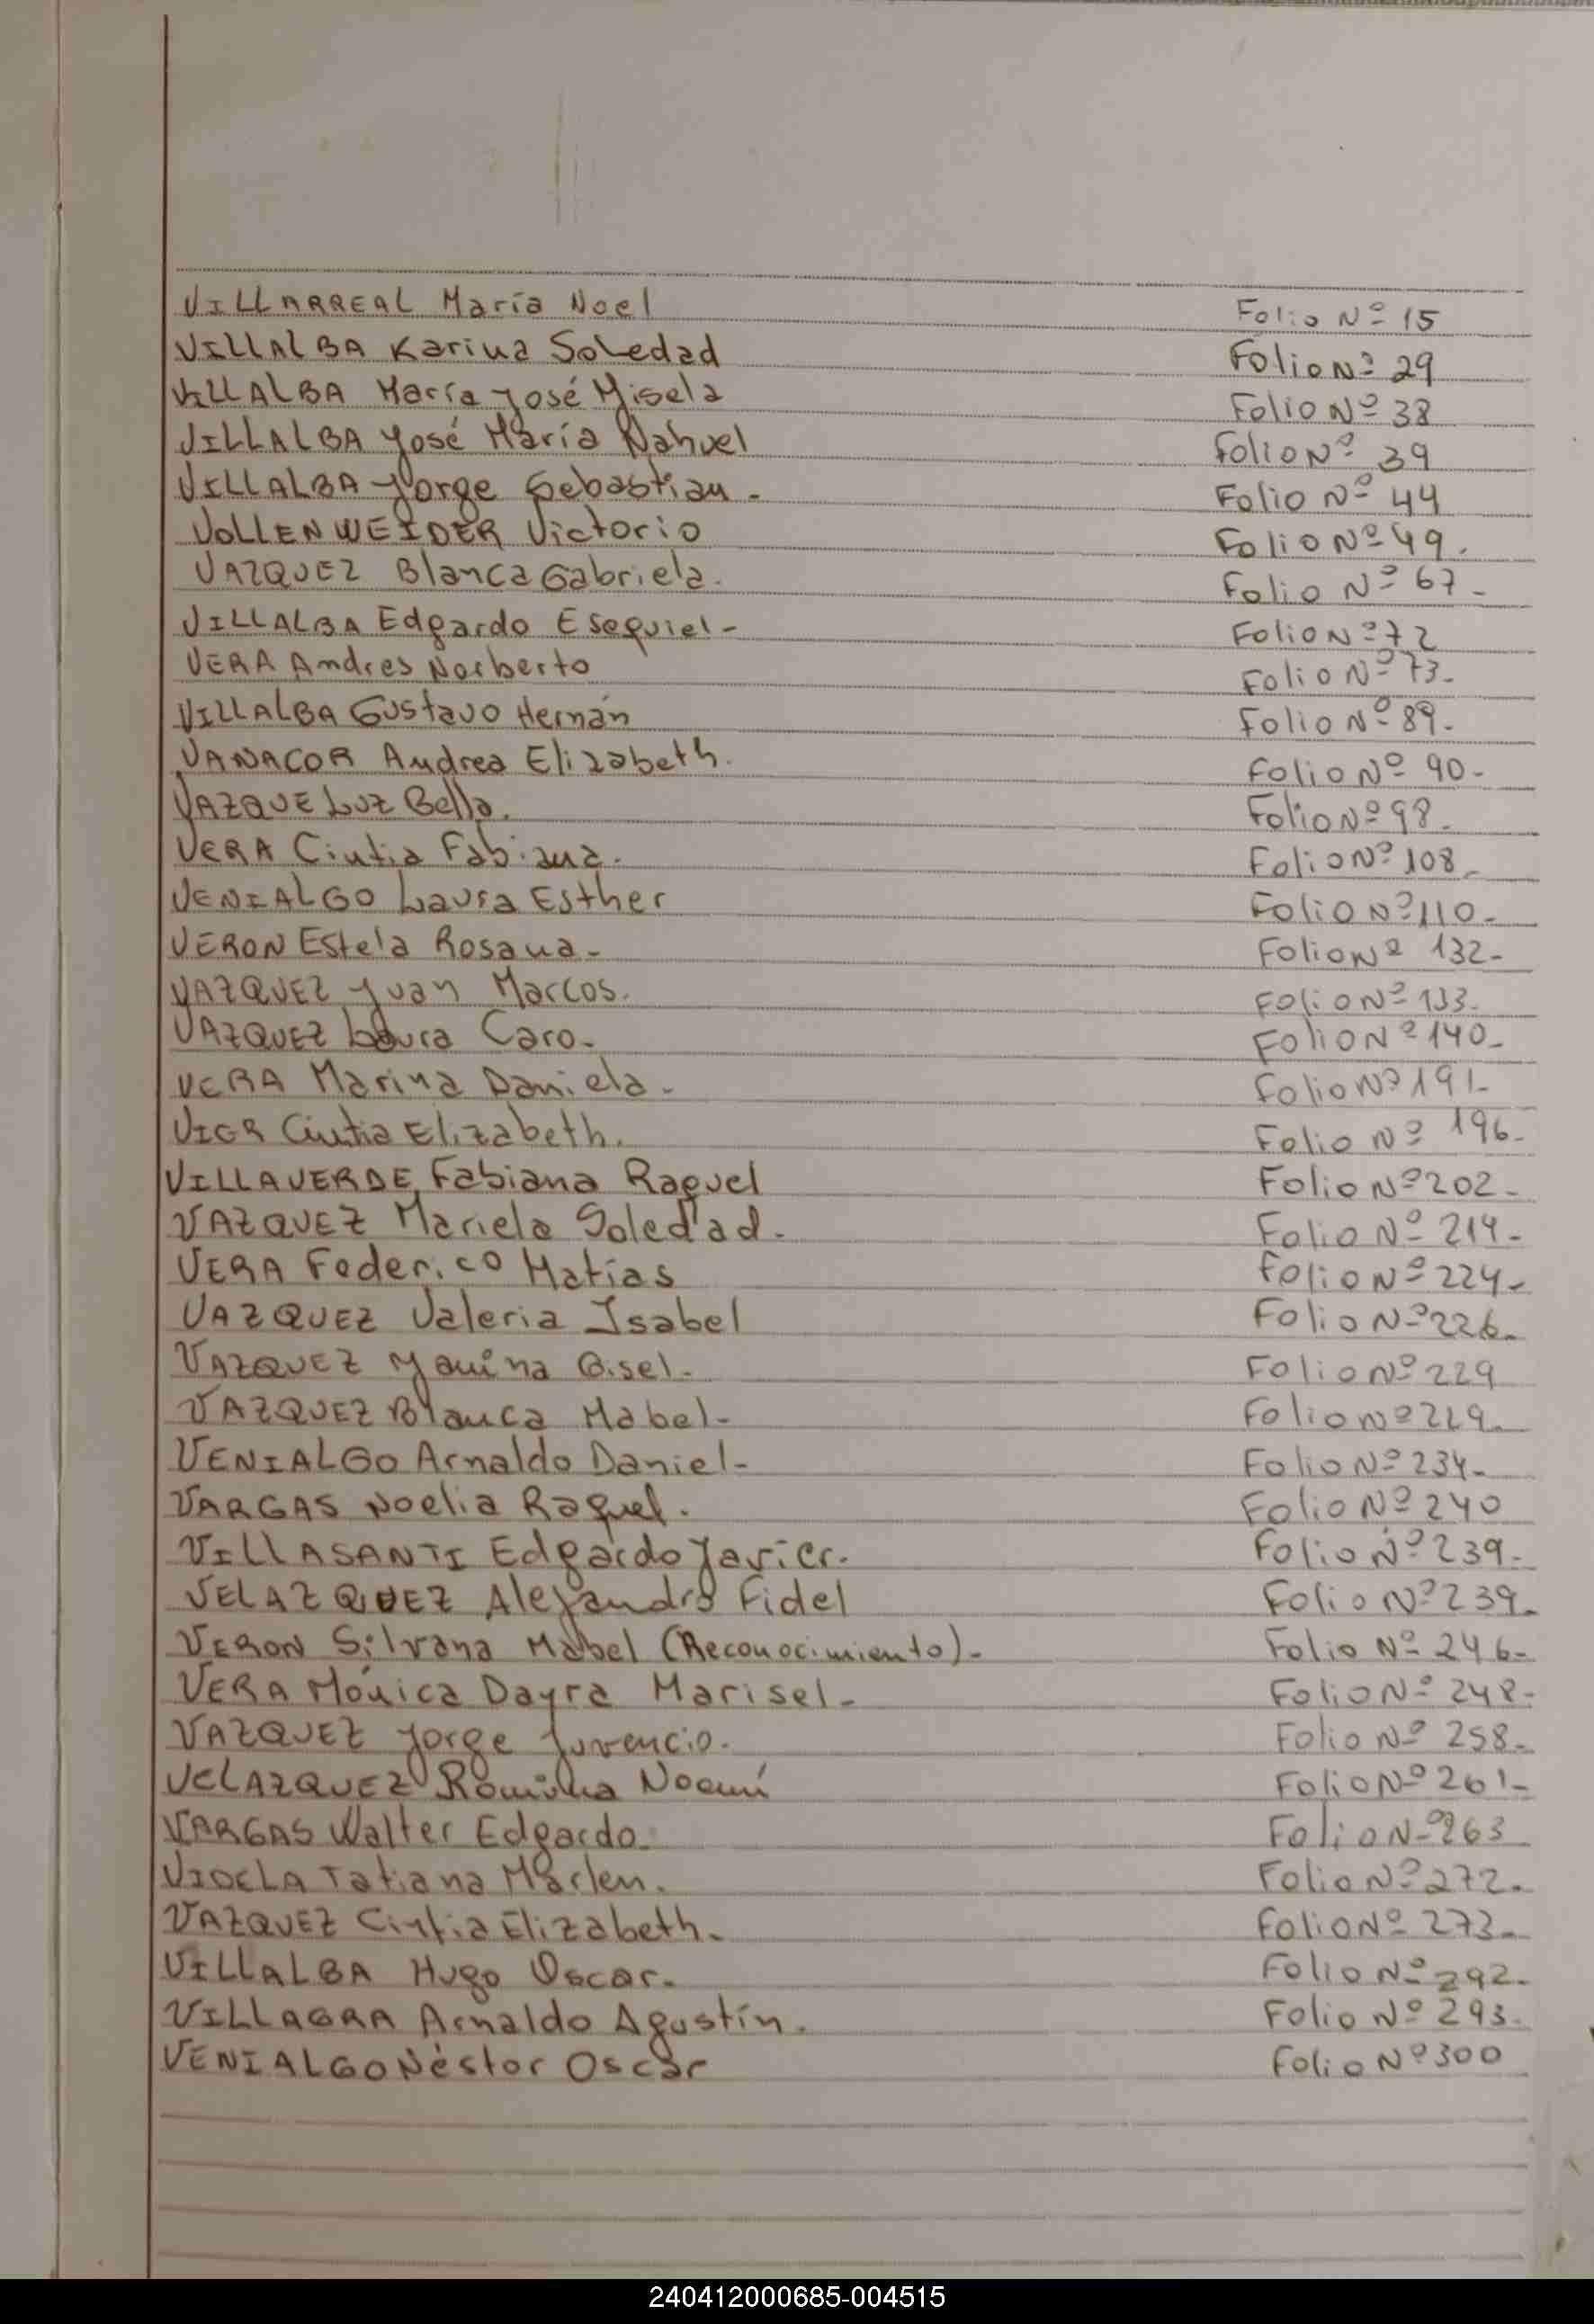 VILLARREAL María Noel Folio Nº 15
VILLALBA Karina Soledad Folio Nº 29
VILLALBA María José Misela Folio Nº 38
VILLALBA José María Nahuel Folio Nº 39
VILLALBA Jorge Sebastian - Folio Nº 44
VOLLENWEIDER Victorio Folio Nº 49.
VAZQUEZ Blanca Gabriela. Folio Nº 67-
VILLALBA Edgardo Esequiel- Folio Nº 72
VERA Andres Norberto Folio Nº 73-
VILLALBA Gustavo Hernán Folio Nº 89-
VANACOR Andrea Elizabeth. Folio Nº 90-
VAZQUE Luz Bella. Folio Nº 98-
VERA Cintia Fabiana. Folio Nº 108-
VENIALGO Laura Esther Folio Nº 110-
VERON Estela Rosana- Folio Nº 132-
VAZQUEZ Juan Marcos. Folio Nº 133-
VAZQUEZ Laura Caro- Folio Nº 140-
VERA Marina Daniela- Folio Nº 191-
Cintia Elizabeth. Folio Nº 196-
VILLAVERDE Fabiana Raquel Folio Nº 202-
VAZQUEZ Mariela Soledad- Folio Nº 214-
VERA Federico Matias Folio Nº 224-
VAZQUEZ Valeria Isabel Folio Nº 226-
VAZQUEZ Yanina Gisel- Folio Nº 229
VAZQUEZ Blanca Mabel- Folio Nº 229-
VENIALGO Arnaldo Daniel- Folio Nº 234-
VARGAS Noelia Raquel. Folio Nº 240
VILLASANTI Edgardo Javier. Folio Nº 239-
VELAZQUEZ Alejandro Fidel Folio Nº 239-
VERON Silvana Mabel (Reconocimiento)- Folio Nº 246-
VERA Mónica Dayra Marisel- Folio Nº 248-
VAZQUEZ Jorge Juvencio. Folio Nº 258-
VELAZQUEZ Romina Noemí Folio Nº 261-
VARGAS Walter Edgardo. Folio Nº 263
VIDELA Tatiana Marlen. Folio Nº 272-
VAZQUEZ Cintia Elizabeth- Folio Nº 273-
VILLALBA Hugo Oscar- Folio Nº 292-
VILLAGRA Arnaldo Agustín. Folio Nº 293-
VENIALGO Néstor Oscar Folio Nº 300
240412000685-004515